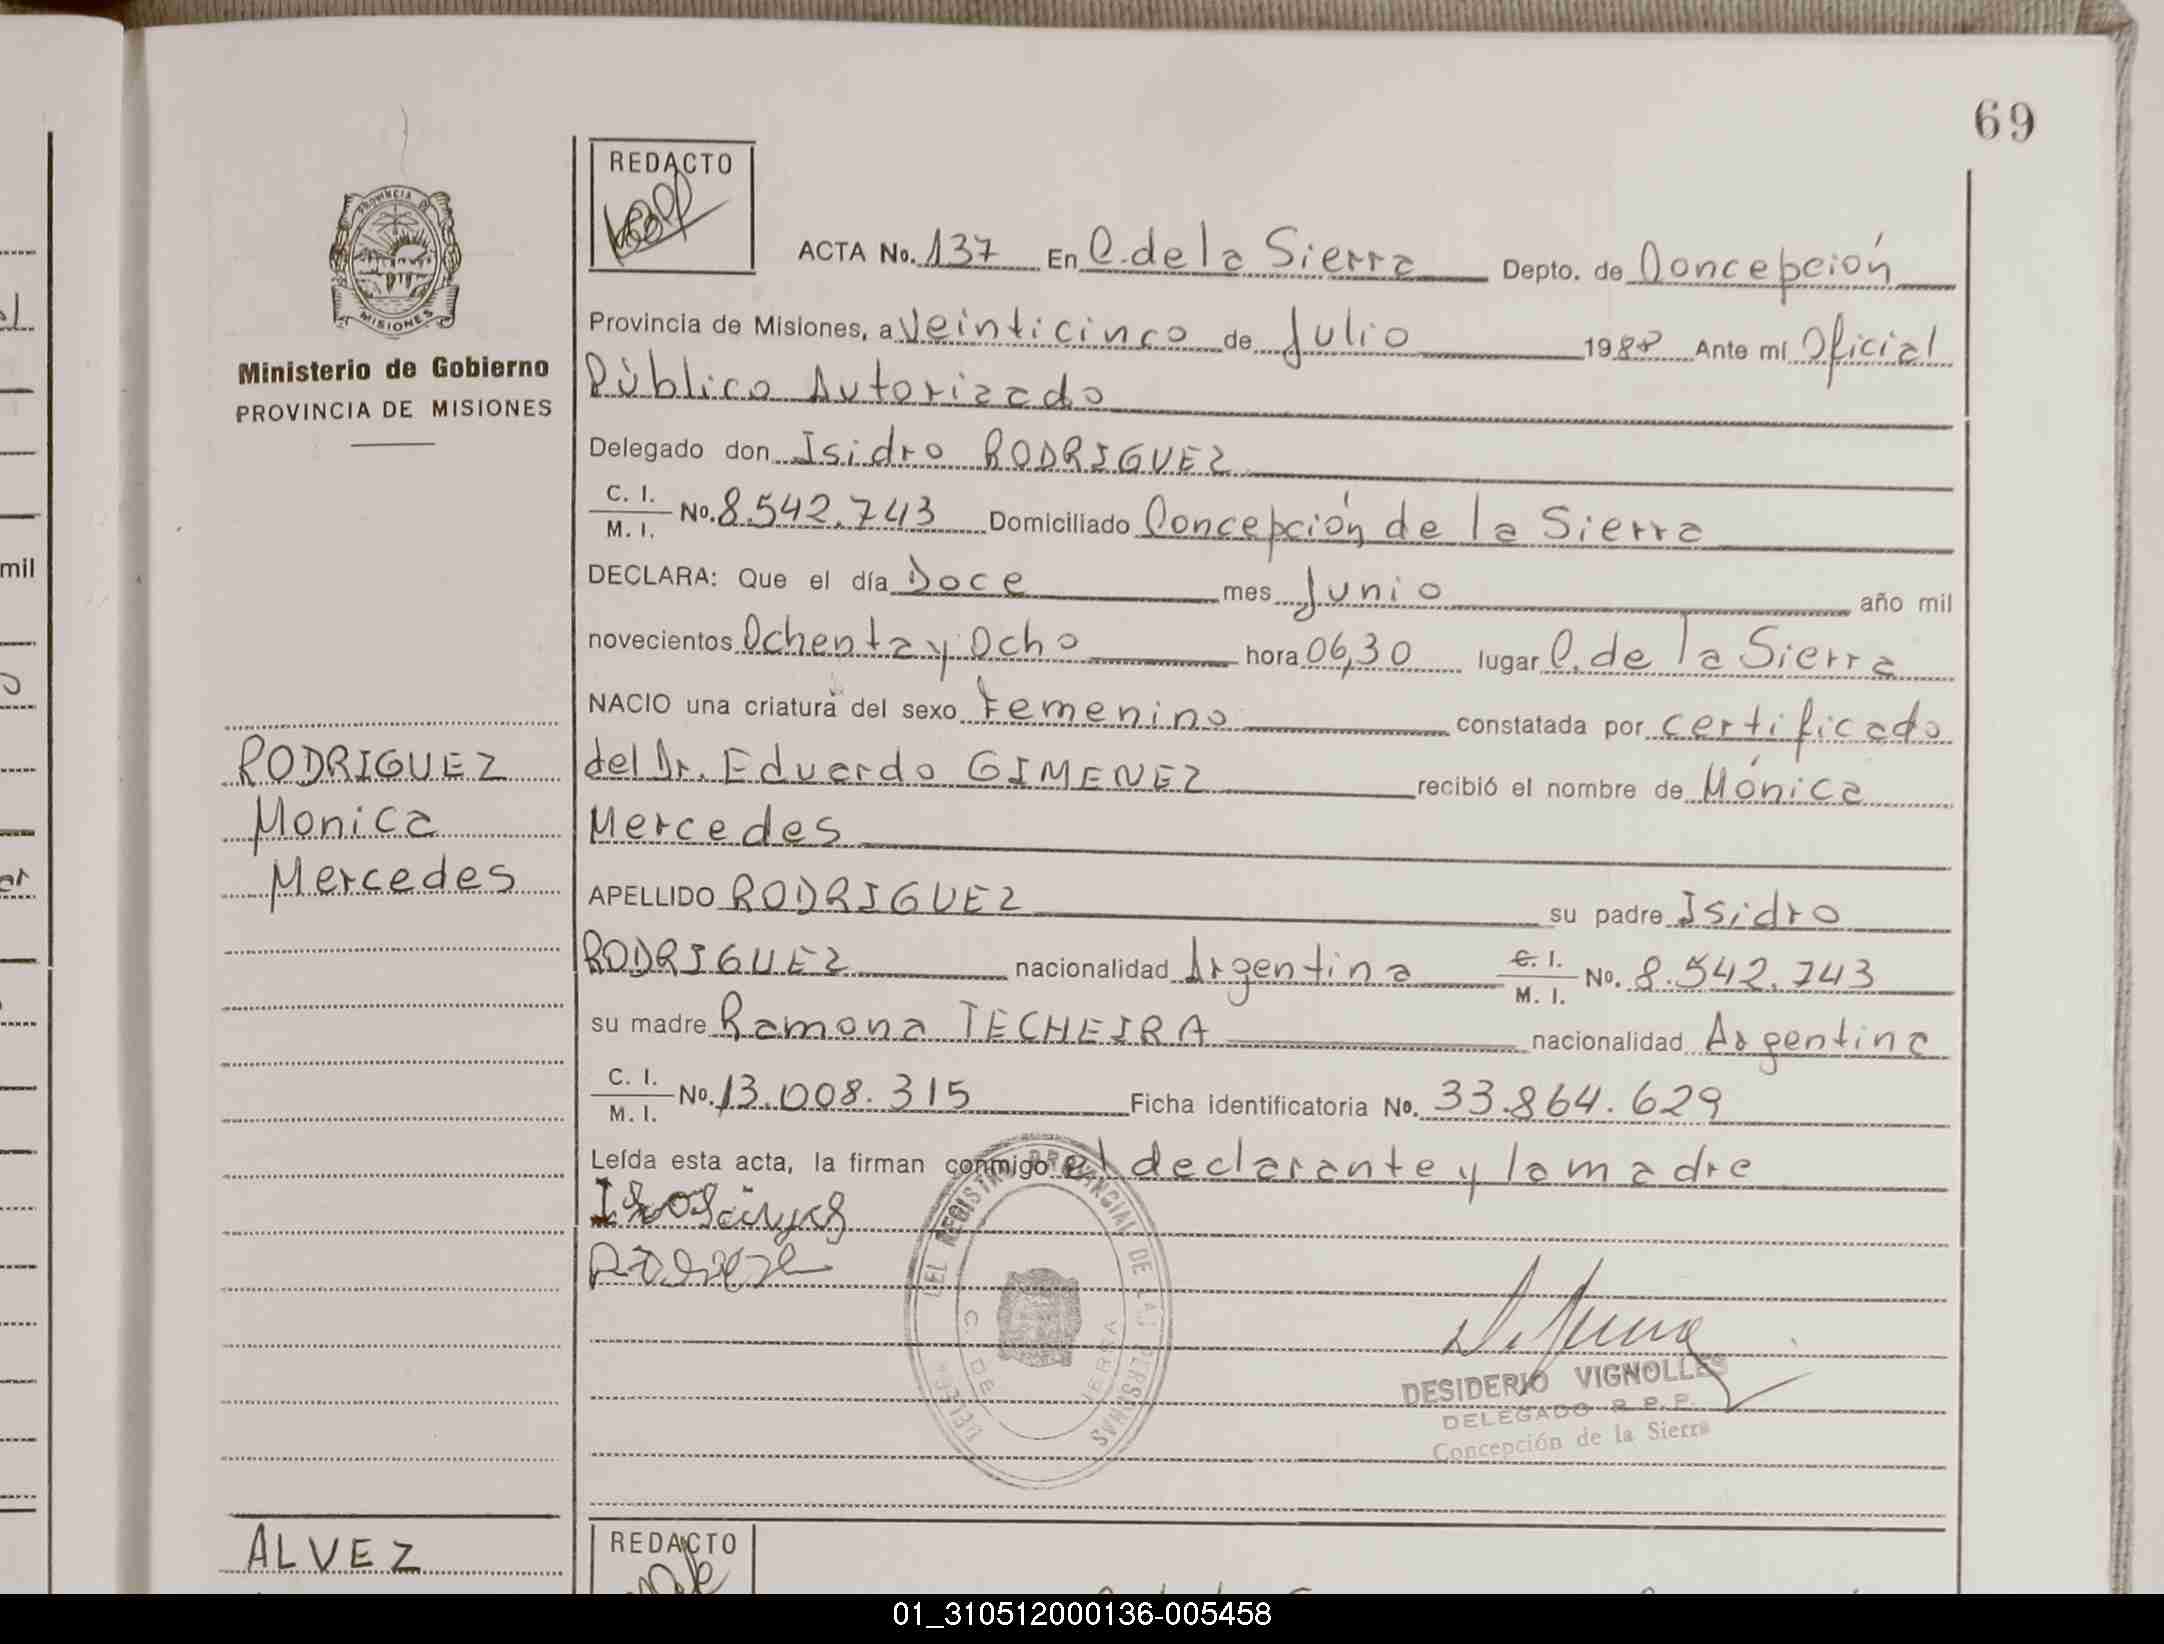 69
PROVINCIA DE
MISIONES
Ministerio de Gobierno
PROVINCIA DE MISIONES
RODRIGUEZ
Monica
Mercedes
REDACTO
ACTA No. 137 En C. de la Sierra Depto. de Concepción
Provincia de Misiones, a Veinticinco de Julio 1988 Ante mí Oficial
Público Autorizado
Delegado don Isidro RODRIGUEZ
C. I.
M. I. No. 8.542.743 Domiciliado Concepción de la Sierra
DECLARA: Que el día Doce mes Junio año mil
novecientos Ochenta y Ocho hora 06,30 lugar C. de la Sierra
NACIO una criatura del sexo Femenino constatada por certificado
del Dr. Eduardo GIMENEZ recibió el nombre de Mónica
Mercedes
APELLIDO RODRIGUEZ su padre Isidro
RODRIGUEZ nacionalidad Argentina C. I. M. I. No. 8.542.743
su madre Ramona TECHEIRA nacionalidad Argentina
C. I.
M. I. No. 13.008.315 Ficha identificatoria No. 33.864.629
Leída esta acta, la firman conmigo el declarante y la madre
DEL REGISTRO PROVINCIAL DE LAS PERSONAS
C. DE SIERRA
DESIDERIO VIGNOLLES
DELEGADO R. P. P.
Concepción de la Sierra
ALVEZ
REDACTO
mil
01_310512000136-005458